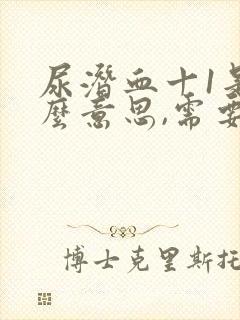 尿潜血十1是
麼意思,需要
博士克里斯托